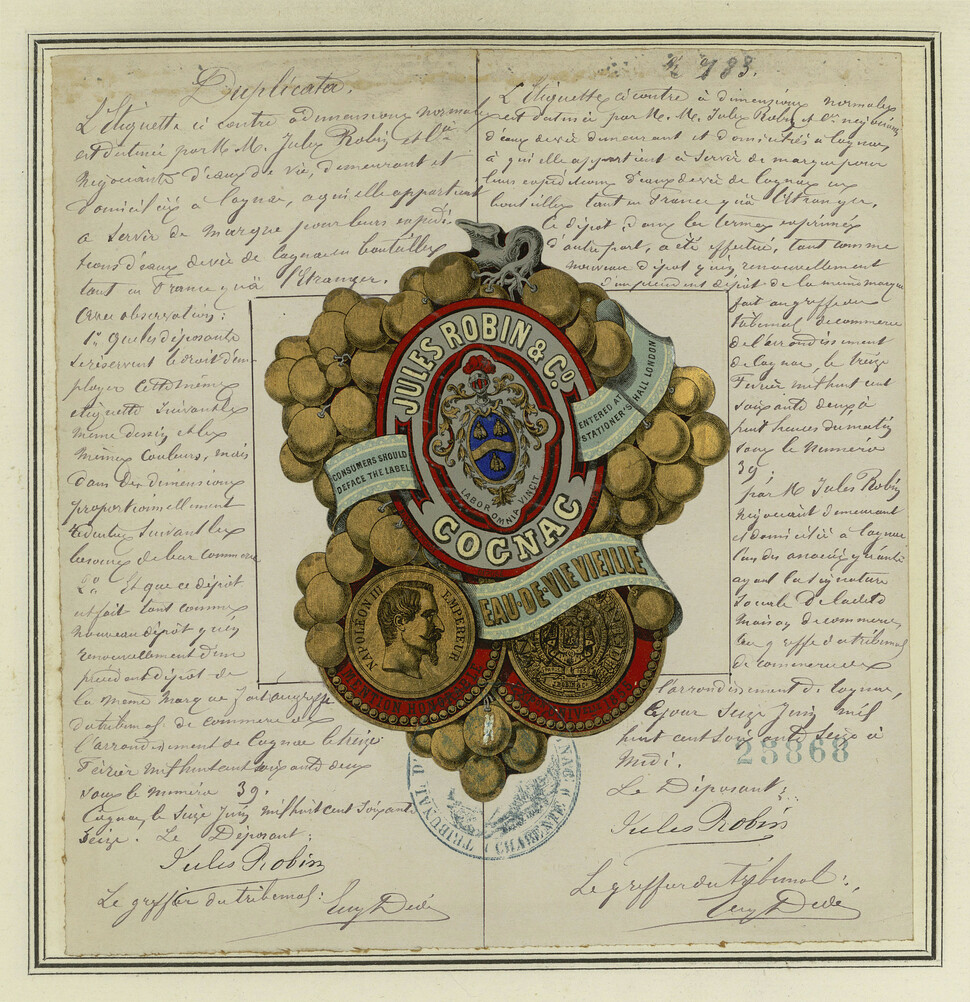 Duplicata.
L'Etiquette ci contre à dimensions normales
est destinée par M. M. Jules Robin et Cie
Négociants d'eaux de vie, demeurant et
domiciliés à Cognac, à qui elle appartient
à servir de marque pour leurs expédi-
tions d'eaux de vie de Cognac en bouteilles
tant en France qu'à l'Etranger.
Avec observation:
1o que les déposants
se réservent le droit d'em-
ployer cette même
étiquette suivant les
même dessin et les
mêmes couleurs, mais
dans des dimensions
proportionnellement
réduites suivant les
besoins de leur commerce
2o Et que ce dépôt
est fait tant comme
nouveau dépôt qu'en
renouvellement d'un
précédent dépôt de
la même marque fait au greffe
du tribunal de commerce de
l'arrondissement de Cognac le treize
Février mil huit cent soixante deux
sous le numéro 39.
Cognac, le Seize Juin mil huit cent soixante
Seize. Le Déposant:
Jules Robin
Le greffier du tribunal:
No 933.
L'Etiquette ci contre à dimensions normales
est destinée par M. M. Jules Robin et Cie négociants
d'eaux de vie demeurant et domiciliés à Cognac,
à qui elle appartient à servir de marque pour
leurs expéditions d'eaux de vie de Cognac en
bouteilles tant en France qu'à l'Etranger.
Ce dépôt, dans les termes exprimés
d'autre part, a été effectué, tant comme
nouveau dépôt qu'en renouvellement
d'un précédent dépôt de la même marque
fait au greffe du
tribunal de commerce
de l'arrondissement
de Cognac, le treize
Février mil huit cent
soixante deux, à
huit heures du matin
sous le numéro
39,
par M. Jules Robin
négociant demeurant
et domicilié à Cognac
l'un des associés gérants
ayant la signature
sociale de ladite
maison de commerce,
au greffe du tribunal
de commerce de
l'arrondissement de Cognac,
ce jour Seize Juin mil
huit cent soixante Seize à
Midi.
23868
Le Déposant:
Jules Robin
Le greffier du tribunal:
JULES ROBIN & Co.
COGNAC
LABOR OMNIA VINCIT
CONSUMERS SHOULD
DEFACE THE LABEL
ENTERED AT
STATIONER'S HALL LONDON
EAU-DE-VIE VIEILLE
NAPOLEON III EMPEREUR
MENTION HONORABLE
TRIBUNAL D
CHARENTE